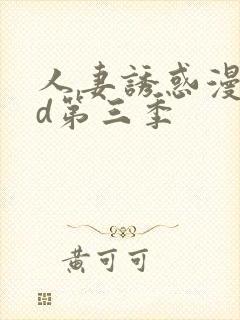 人妻誘惑漫
d第三季
黄可可